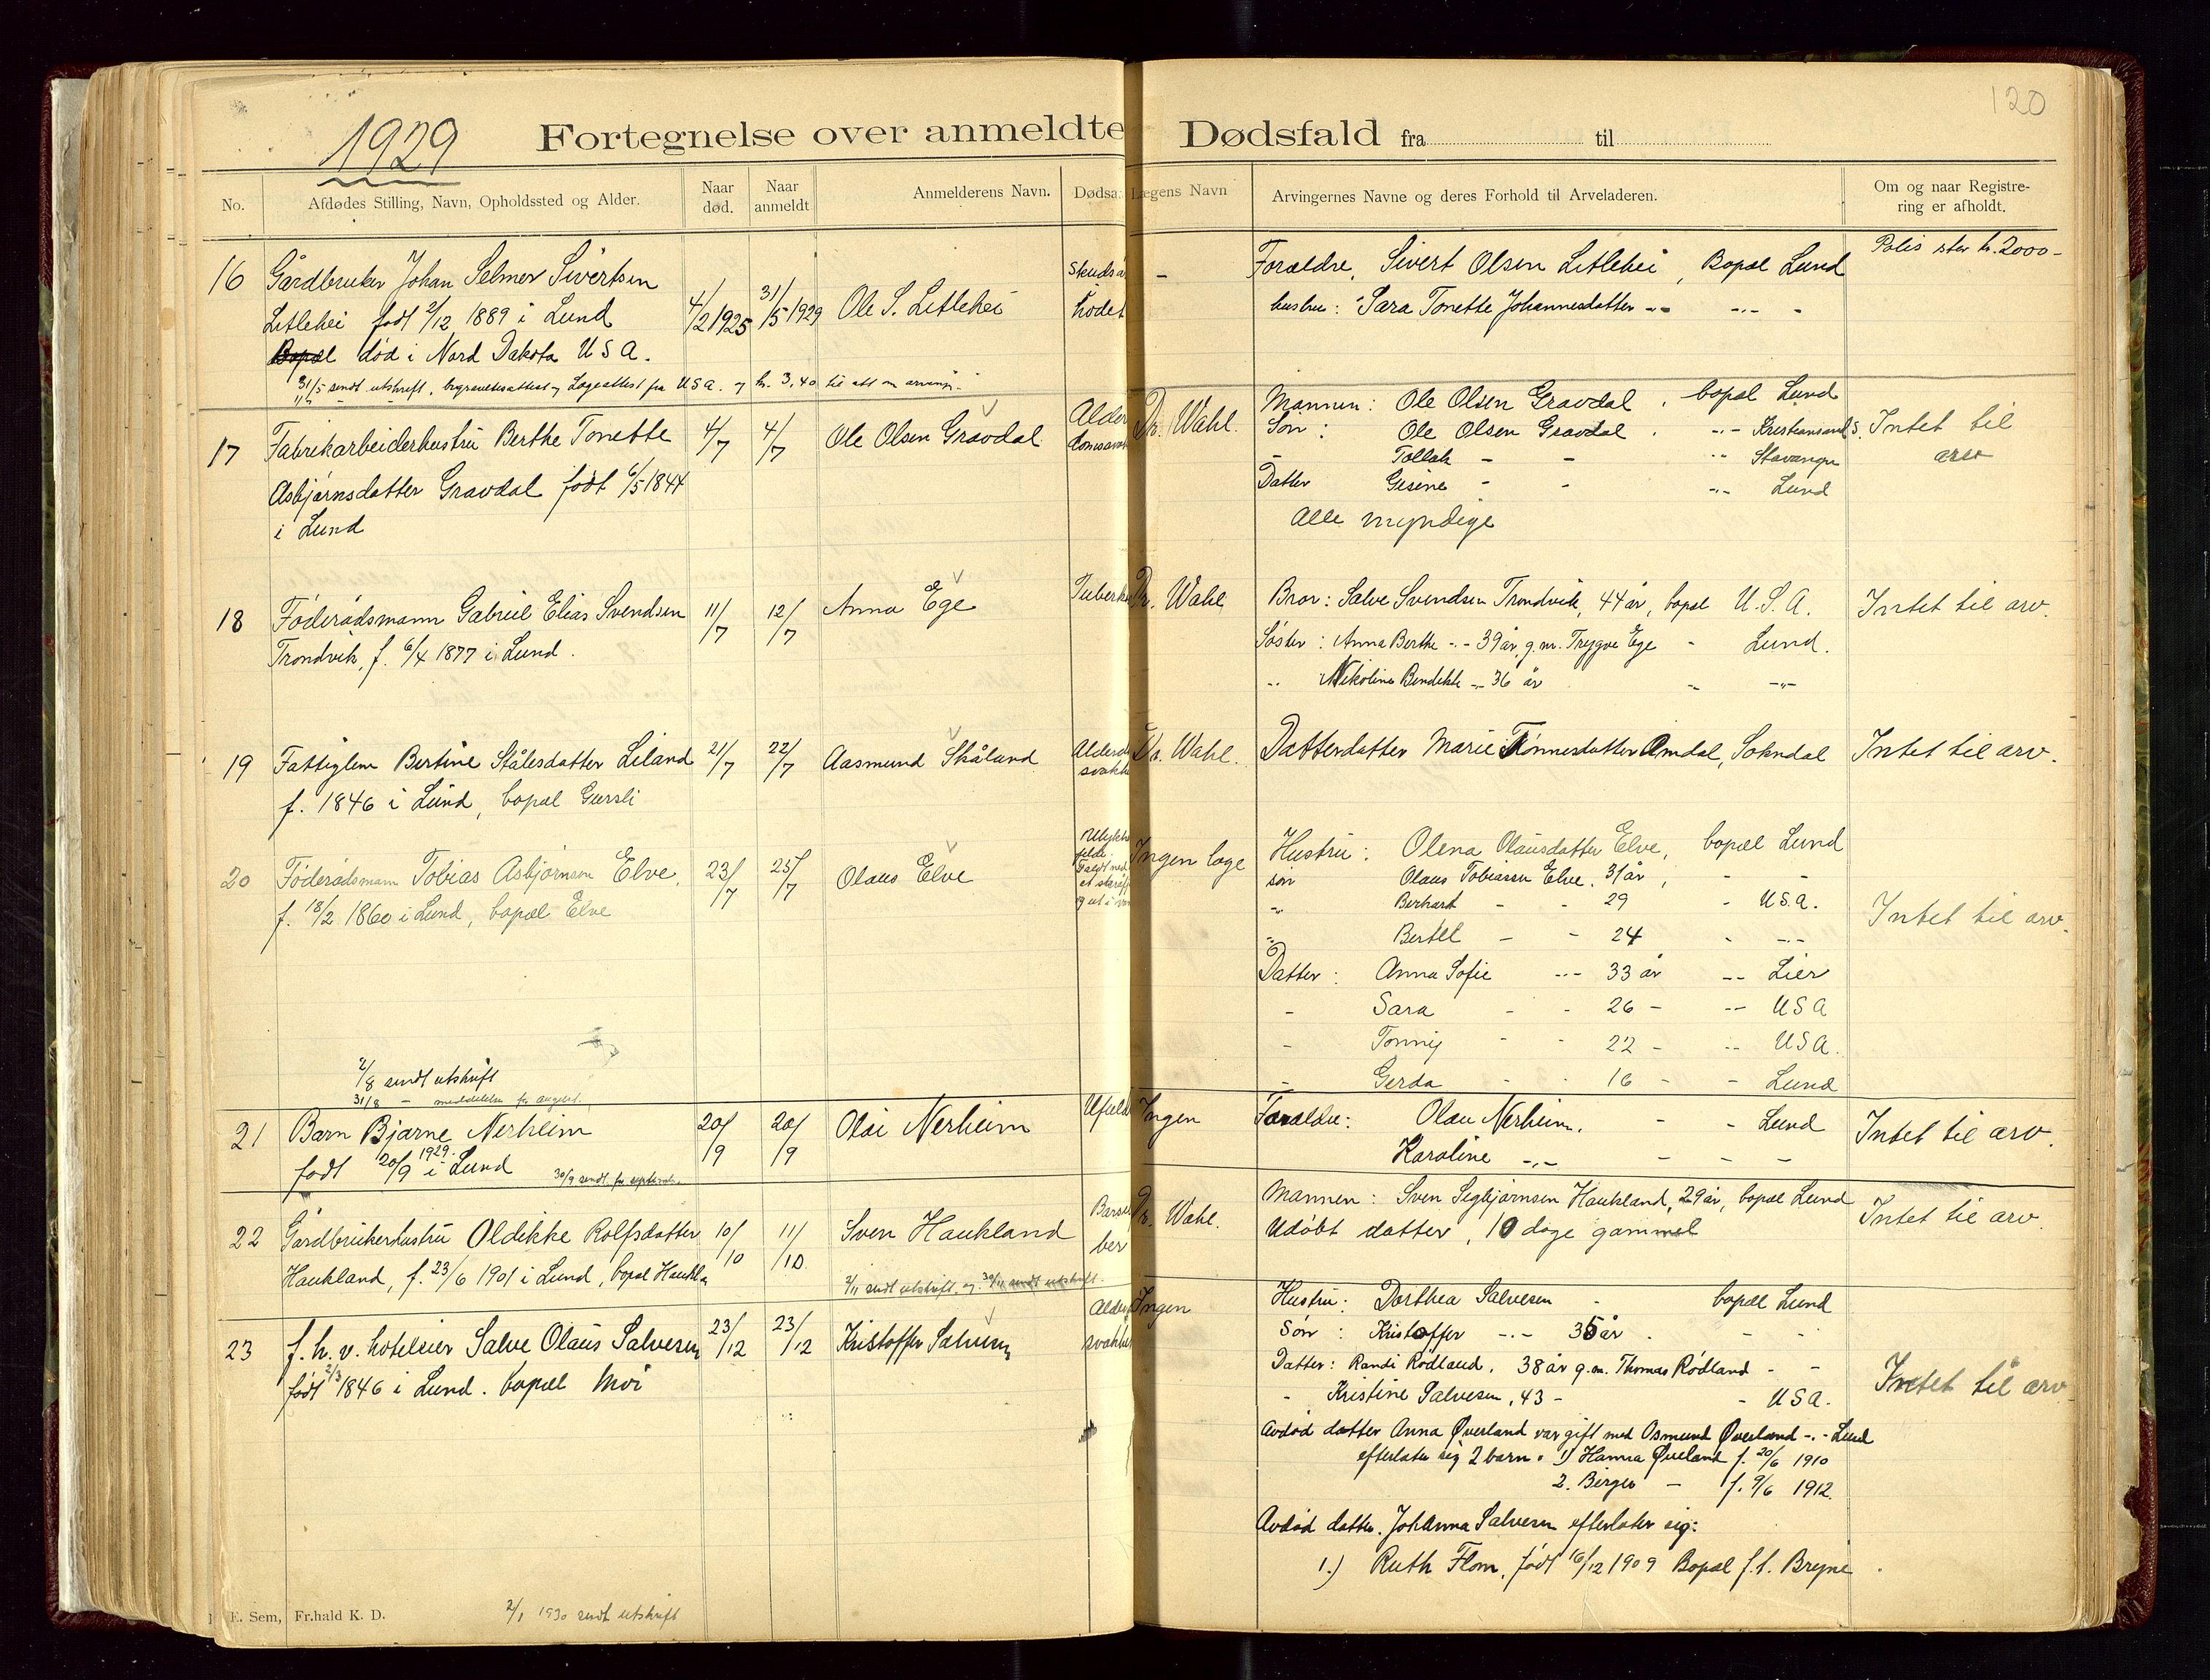 120
1929
Fortegnelse over anmeldte Dødsfald fra til
No.
Afdødes Stilling, Navn, Opholdssted og Alder.
Naar død.
Naar anmeldt
Anmelderens Navn.
Dødsa
Lægens Navn
Arvingernes Navne og deres Forhold til Arveladeren.
Om og naar Registrering er afholdt.
16
Gårdbruker Johan Selmer Sivertsen
Litlehei født 2/12 1889 i Lund
Bopæl død i Nord Dakota U S A.
31/5 sendt utskrift, og Lægeattest fra U S A. og kr. 3,40 til att om arving.
4/2 1925
31/5 1929
Ole S. Litlehei
Skudså
hodet
-
Forældre, Sivert Olsen Litlehei, Bopæl Lund
hustru: Sara Tonette Johannesdatter -"- -"- -
Polis stor kr. 2000-
17
Fabrikarbeiderhustru Berthe Tonette
Asbjørnsdatter Gravdal født 6/5 1844
i Lund
4/7
4/7
Ole Olsen Gravdal
Alder
domssvak
Dr. Wahl.
Mannen: Ole Olsen Gravdal, bopæl Lund
Søn: Ole Olsen Gravdal. -"- Kristiansand S.
- Tollak - - -"- Stavanger
Datter Gisine - - -"- Lund
Alle myndige
Intet til
arv
18
Føderådsmann Gabriel Elias Svendsen
Trondvik, f. 6/4 1877 i Lund.
11/7
12/7
Anna Ege
Tuberku
Dr. Wahl
Bror: Salve Svendsen Trondvik, 44 år, bopæl U.S.A.
Søster: Anna Berthe -"- 39 år, g.m. Trygve Ege - Lund.
-"- Nikoline Bendikte -"- 36 år -"- -"-
Intet til arv.
19
Fattiglem Bertine Stålesdatter Liland
f. 1846 i Lund, bopæl Gursli
21/7
22/7
Aasmund Skåland
Alderd
svakhe
Dr. Wahl.
Datterdatter Marie Tønnesdatter Amdal, Sokndal
Intet til arv.
20
Føderådsmann Tobias Asbjørnsen Elve,
f. 18/2 1860 i Lund, bopæl Elve
23/7
25/7
Olaus Elve
Ulykke
felde.
Faldt ned
og ut i van
Ingen læge
Hustru: Olena Olausdatter Elve, bopæl Lund
søn Olaus Tobiassen Elve, 31 år, - -
-"- Berhart - - 29 - U.S.A.
-"- Bertel - - 24 - -"-
Datter: Anna Sofie -"- 33 år -"- Lier
- Sara - - 26 - -"- U S A
- Tonny - - 22 - -"- U S A.
- Gerda - - 16 - - Lund
Intet til arv.
2/8 sendt utskrift
31/8 - meddelelse for august.
21
Barn Bjarne Nerheim
født 20/9 1929. i Lund
30/9 sendt for september.
20/9
20/9
Olai Nerheim
Ufuld
Ingen
Forældre: Olau Nerheim. - - Lund
Karoline -"- - - -
Intet til arv.
22
Gårdbrukerhustru Oldikke Rolfsdatter
Haukland, f. 23/6 1901 i Lund, bopæl Haukla
10/10
11/10
Sven Haukland
2/11 sendt utskrift, og 30/11 sendt utskrift.
Barse
ber
Dr. Wahl.
Mannen: Sven Segbjørnsen Haukland, 29 år, bopæl Lund
Udøbt datter, 10 dage gammel
Intet til arv.
23
f. h. v. hotelleier Salve Olaus Salvesen
født 2/3 1846 i Lund. bopæl Moi
23/12
23/12
Kristoffer Salvesen
Alder
svakhet
Ingen
Hustru: Dorthea Salvesen - bopæl Lund
Søn: Kristoffer -"- 35 år. - -
Datter: Randi Rødland, 38 år g.m. Thomas Rødland - -
- Kristine Salvesen, 43 - - U S A.
Avdød datter Anna Øverland var gift med Osmund Øverland -"- Lund
efterlater sig 2 barn. 1) Hanna Øveland f. 20/6 1910
2. Birger - f. 9/6 1912.
Avdød datter. Johanna Salvesen efterlater sig:
1.) Ruth Flom, født 16/12 1909 Bopæl f.t. Bryne.
Intet til arv
E. Sem, Fr.hald K. D.
2/1 1930 sendt utskrift